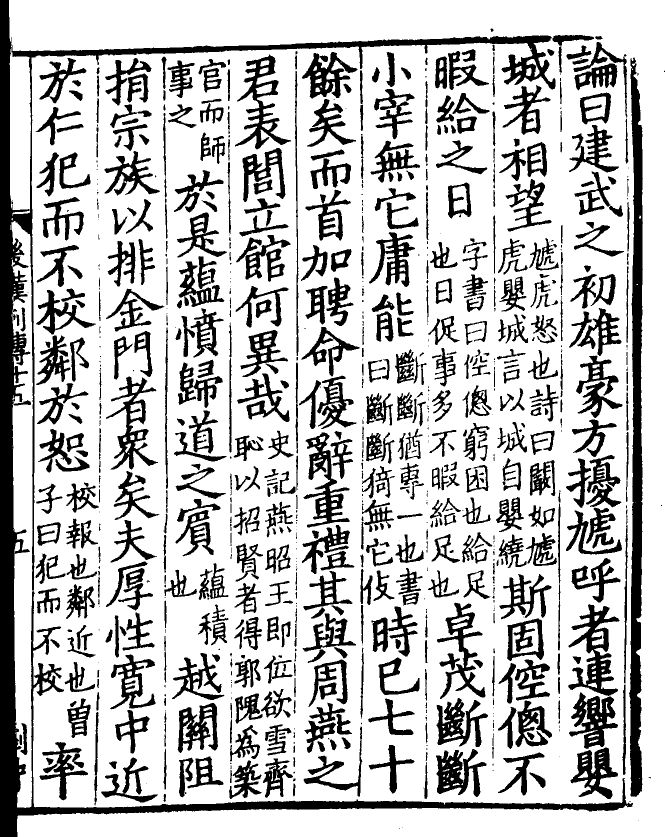 論曰建武之初雄豪方擾虓呼者連響嬰
城者相望虓虎怒也詩曰闞如虓虎嬰城言以城自嬰繞斯固倥傯不
暇給之日字書曰倥傯窮困也給足也日促事多不暇給足也卓茂斷斷
小宰無它庸能斷斷猶專一也書曰斷斷猗無它伎時已七十
餘矣而首加聘命優辭重禮其與周燕之
君表閭立館何異哉史記燕昭王即位欲雪齊恥以招賢者得郭隗為築
官而師事之於是蘊憤歸道之賓蘊積也越關阻
捐宗族以排金門者衆矣夫厚性寬中近
於仁犯而不校鄰於恕校報也鄰近也曾子曰犯而不校率
後漢列傳十五
五